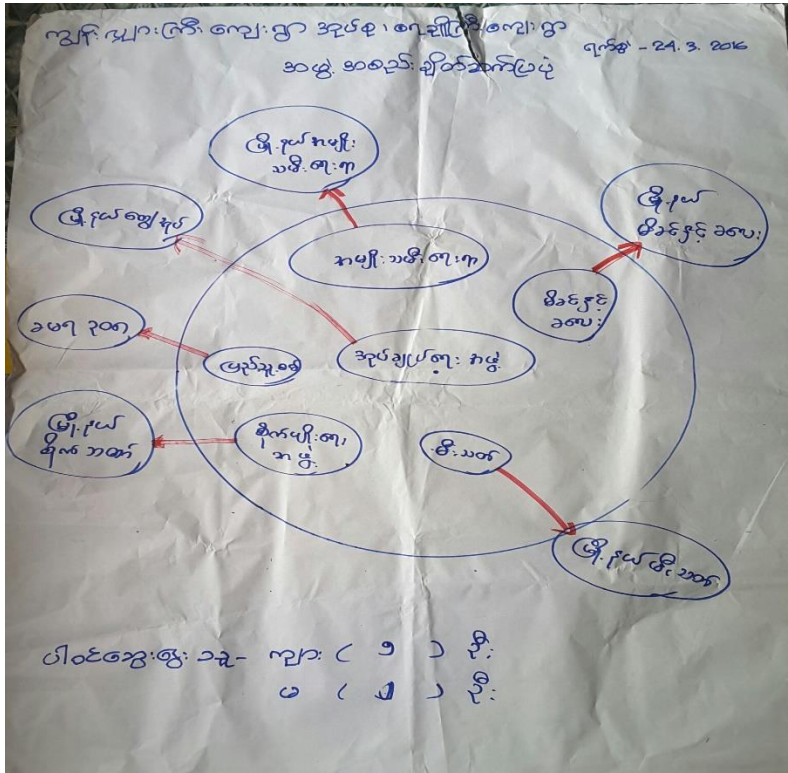 ကျွန်းညှားကြီး ကျေးရွာ အုပ်စု၊ ရေချိုကြီး ကျေးရွာ
ရက်စွဲ - 24.3.2016
အဖွဲ့ အစည်း ချိတ်ဆက်ပြပုံ
မြို့နယ် အမျိုး
သမီးရေးရာ
မြို့နယ်
မိခင်နှင့် ခလေး
မြို့နယ်ထွေအုပ်
အမျိုးသမီးရေးရာ
မိခင်နှင့်
ခလေး
ခမရ
ပြည်သူ့စစ်
အုပ်ချုပ်ရေး အဖွဲ့
မြို့နယ်
စိုက်ဘဏ်
စိုက်ပျိုးရေး
အဖွဲ့
မီးသတ်
မြို့နယ် မီးသတ်
ပါဝင်ဆွေးနွေးသူ - ကျား ( ၅ ) ဦး
မ ( ) ဦး